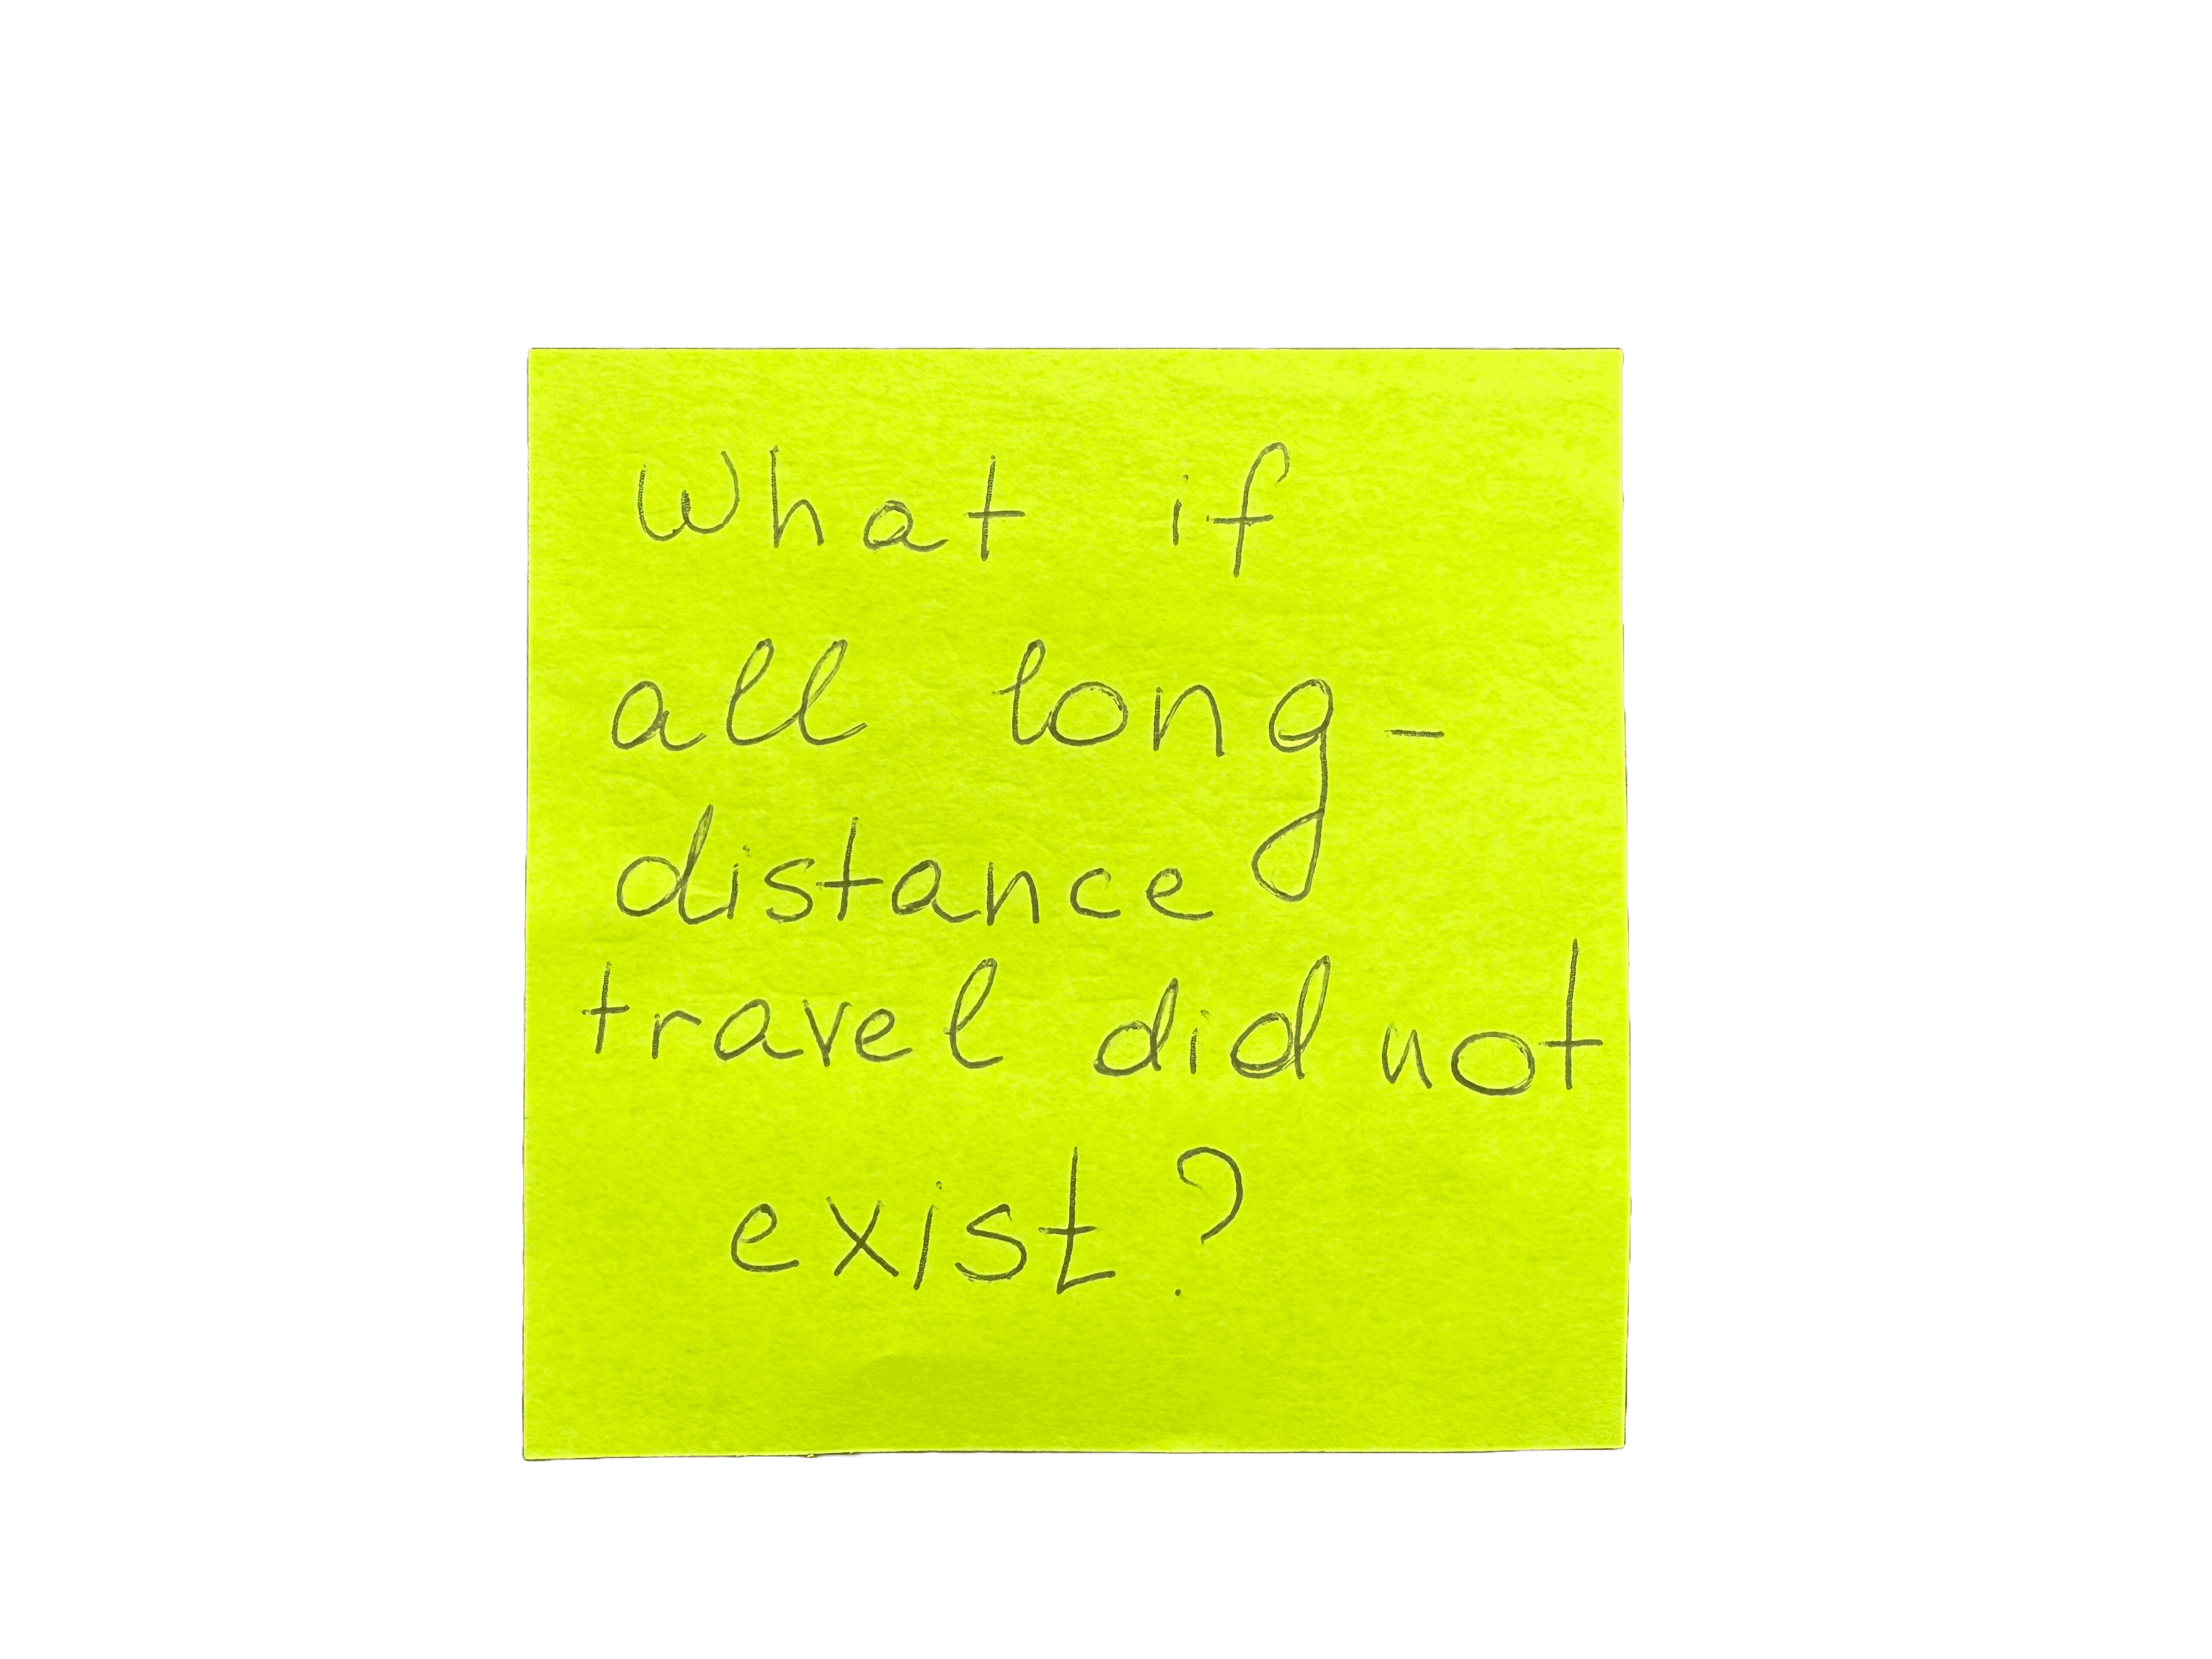 What if
all long-
distance
travel did not
exist?